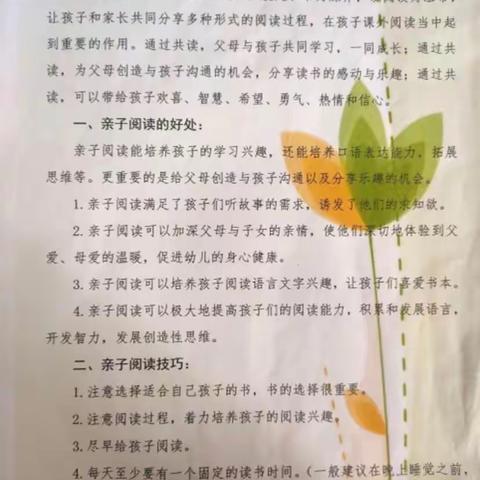 让孩子和家长共同分享多种形式的阅读过程，在孩子课外阅读当中起
到重要的作用。通过共读，父母与孩子共同学习，一同成长；通过共
读，为父母创造与孩子沟通的机会，分享读书的感动与乐趣；通过共
读，可以带给孩子欢喜、智慧、希望、勇气、热情和信心。
一、亲子阅读的好处：
亲子阅读能培养孩子的学习兴趣，还能培养口语表达能力、拓展
思维等。更重要的是给父母创造与孩子沟通以及分享乐趣的机会。
1.亲子阅读满足了孩子们听故事的需求，诱发了他们的求知欲。
2.亲子阅读可以加深父母与子女的亲情，使他们深切地体验到父
爱、母爱的温暖，促进幼儿的身心健康。
3.亲子阅读可以培养孩子阅读语言文字兴趣，让孩子们喜爱书本。
4.亲子阅读可以极大地提高孩子们的阅读能力，积累和发展语言，
开发智力，发展创造性思维。
二、亲子阅读技巧：
1.注意选择适合自己孩子的书，书的选择很重要。
2.注意阅读过程，着力培养孩子的阅读兴趣。
3.尽早给孩子阅读。
4.每天至少要有一个固定的读书时间。（一般建议在晚上睡觉之前，